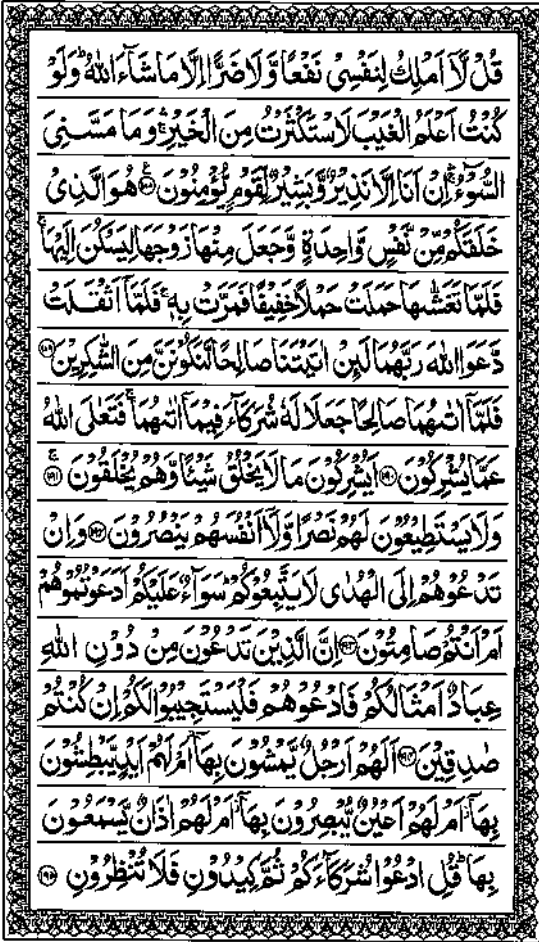 قُلْ لَّاۤ اَمْلِكُ لِنَفْسِیْ نَفْعًا وَّلَا ضَرًّا اِلَّا مَا شَآءَ اللّٰهُ ؕ وَلَوْ
كُنْتُ اَعْلَمُ الْغَیْبَ لَاسْتَكْثَرْتُ مِنَ الْخَیْرِ ۛۚ وَمَا مَسَّنِیَ
السُّوْٓءُ ۛۚ اِنْ اَنَا اِلَّا نَذِیْرٌ وَّبَشِیْرٌ لِّقَوْمٍ یُّؤْمِنُوْنَ ﴿۱۸۸﴾ هُوَ الَّذِیْ
خَلَقَكُمْ مِّنْ نَّفْسٍ وَّاحِدَةٍ وَّجَعَلَ مِنْهَا زَوْجَهَا لِیَسْكُنَ اِلَیْهَا ۚ
فَلَمَّا تَغَشّٰىهَا حَمَلَتْ حَمْلًا خَفِیْفًا فَمَرَّتْ بِهٖ ۚ فَلَمَّاۤ اَثْقَلَتْ
دَّعَوَا اللّٰهَ رَبَّهُمَا لَىِٕنْ اٰتَیْتَنَا صَالِحًا لَّنَكُوْنَنَّ مِنَ الشّٰكِرِیْنَ ﴿۱۸۹﴾
فَلَمَّاۤ اٰتٰىهُمَا صَالِحًا جَعَلَا لَهٗ شُرَكَآءَ فِیْمَاۤ اٰتٰىهُمَا ۚ فَتَعٰلَی اللّٰهُ
عَمَّا یُشْرِكُوْنَ ﴿۱۹۰﴾ اَیُشْرِكُوْنَ مَا لَا یَخْلُقُ شَیْـًٔا وَّهُمْ یُخْلَقُوْنَ ﴿۱۹۱﴾ۚ
وَلَا یَسْتَطِیْعُوْنَ لَهُمْ نَصْرًا وَّلَاۤ اَنْفُسَهُمْ یَنْصُرُوْنَ ﴿۱۹۲﴾ وَاِنْ
تَدْعُوْهُمْ اِلَی الْهُدٰی لَا یَتَّبِعُوْكُمْ ؕ سَوَآءٌ عَلَیْكُمْ اَدَعَوْتُمُوْهُمْ
اَمْ اَنْتُمْ صَامِتُوْنَ ﴿۱۹۳﴾ اِنَّ الَّذِیْنَ تَدْعُوْنَ مِنْ دُوْنِ اللّٰهِ
عِبَادٌ اَمْثَالُكُمْ فَادْعُوْهُمْ فَلْیَسْتَجِیْبُوْا لَكُمْ اِنْ كُنْتُمْ
صٰدِقِیْنَ ﴿۱۹۴﴾ اَلَهُمْ اَرْجُلٌ یَّمْشُوْنَ بِهَاۤ ؗ اَمْ لَهُمْ اَیْدٍ یَّبْطِشُوْنَ
بِهَاۤ ؗ اَمْ لَهُمْ اَعْیُنٌ یُّبْصِرُوْنَ بِهَاۤ ؗ اَمْ لَهُمْ اٰذَانٌ یَّسْمَعُوْنَ
بِهَا ؕ قُلِ ادْعُوْا شُرَكَآءَكُمْ ثُمَّ كِیْدُوْنِ فَلَا تُنْظِرُوْنِ ﴿۱۹۵﴾